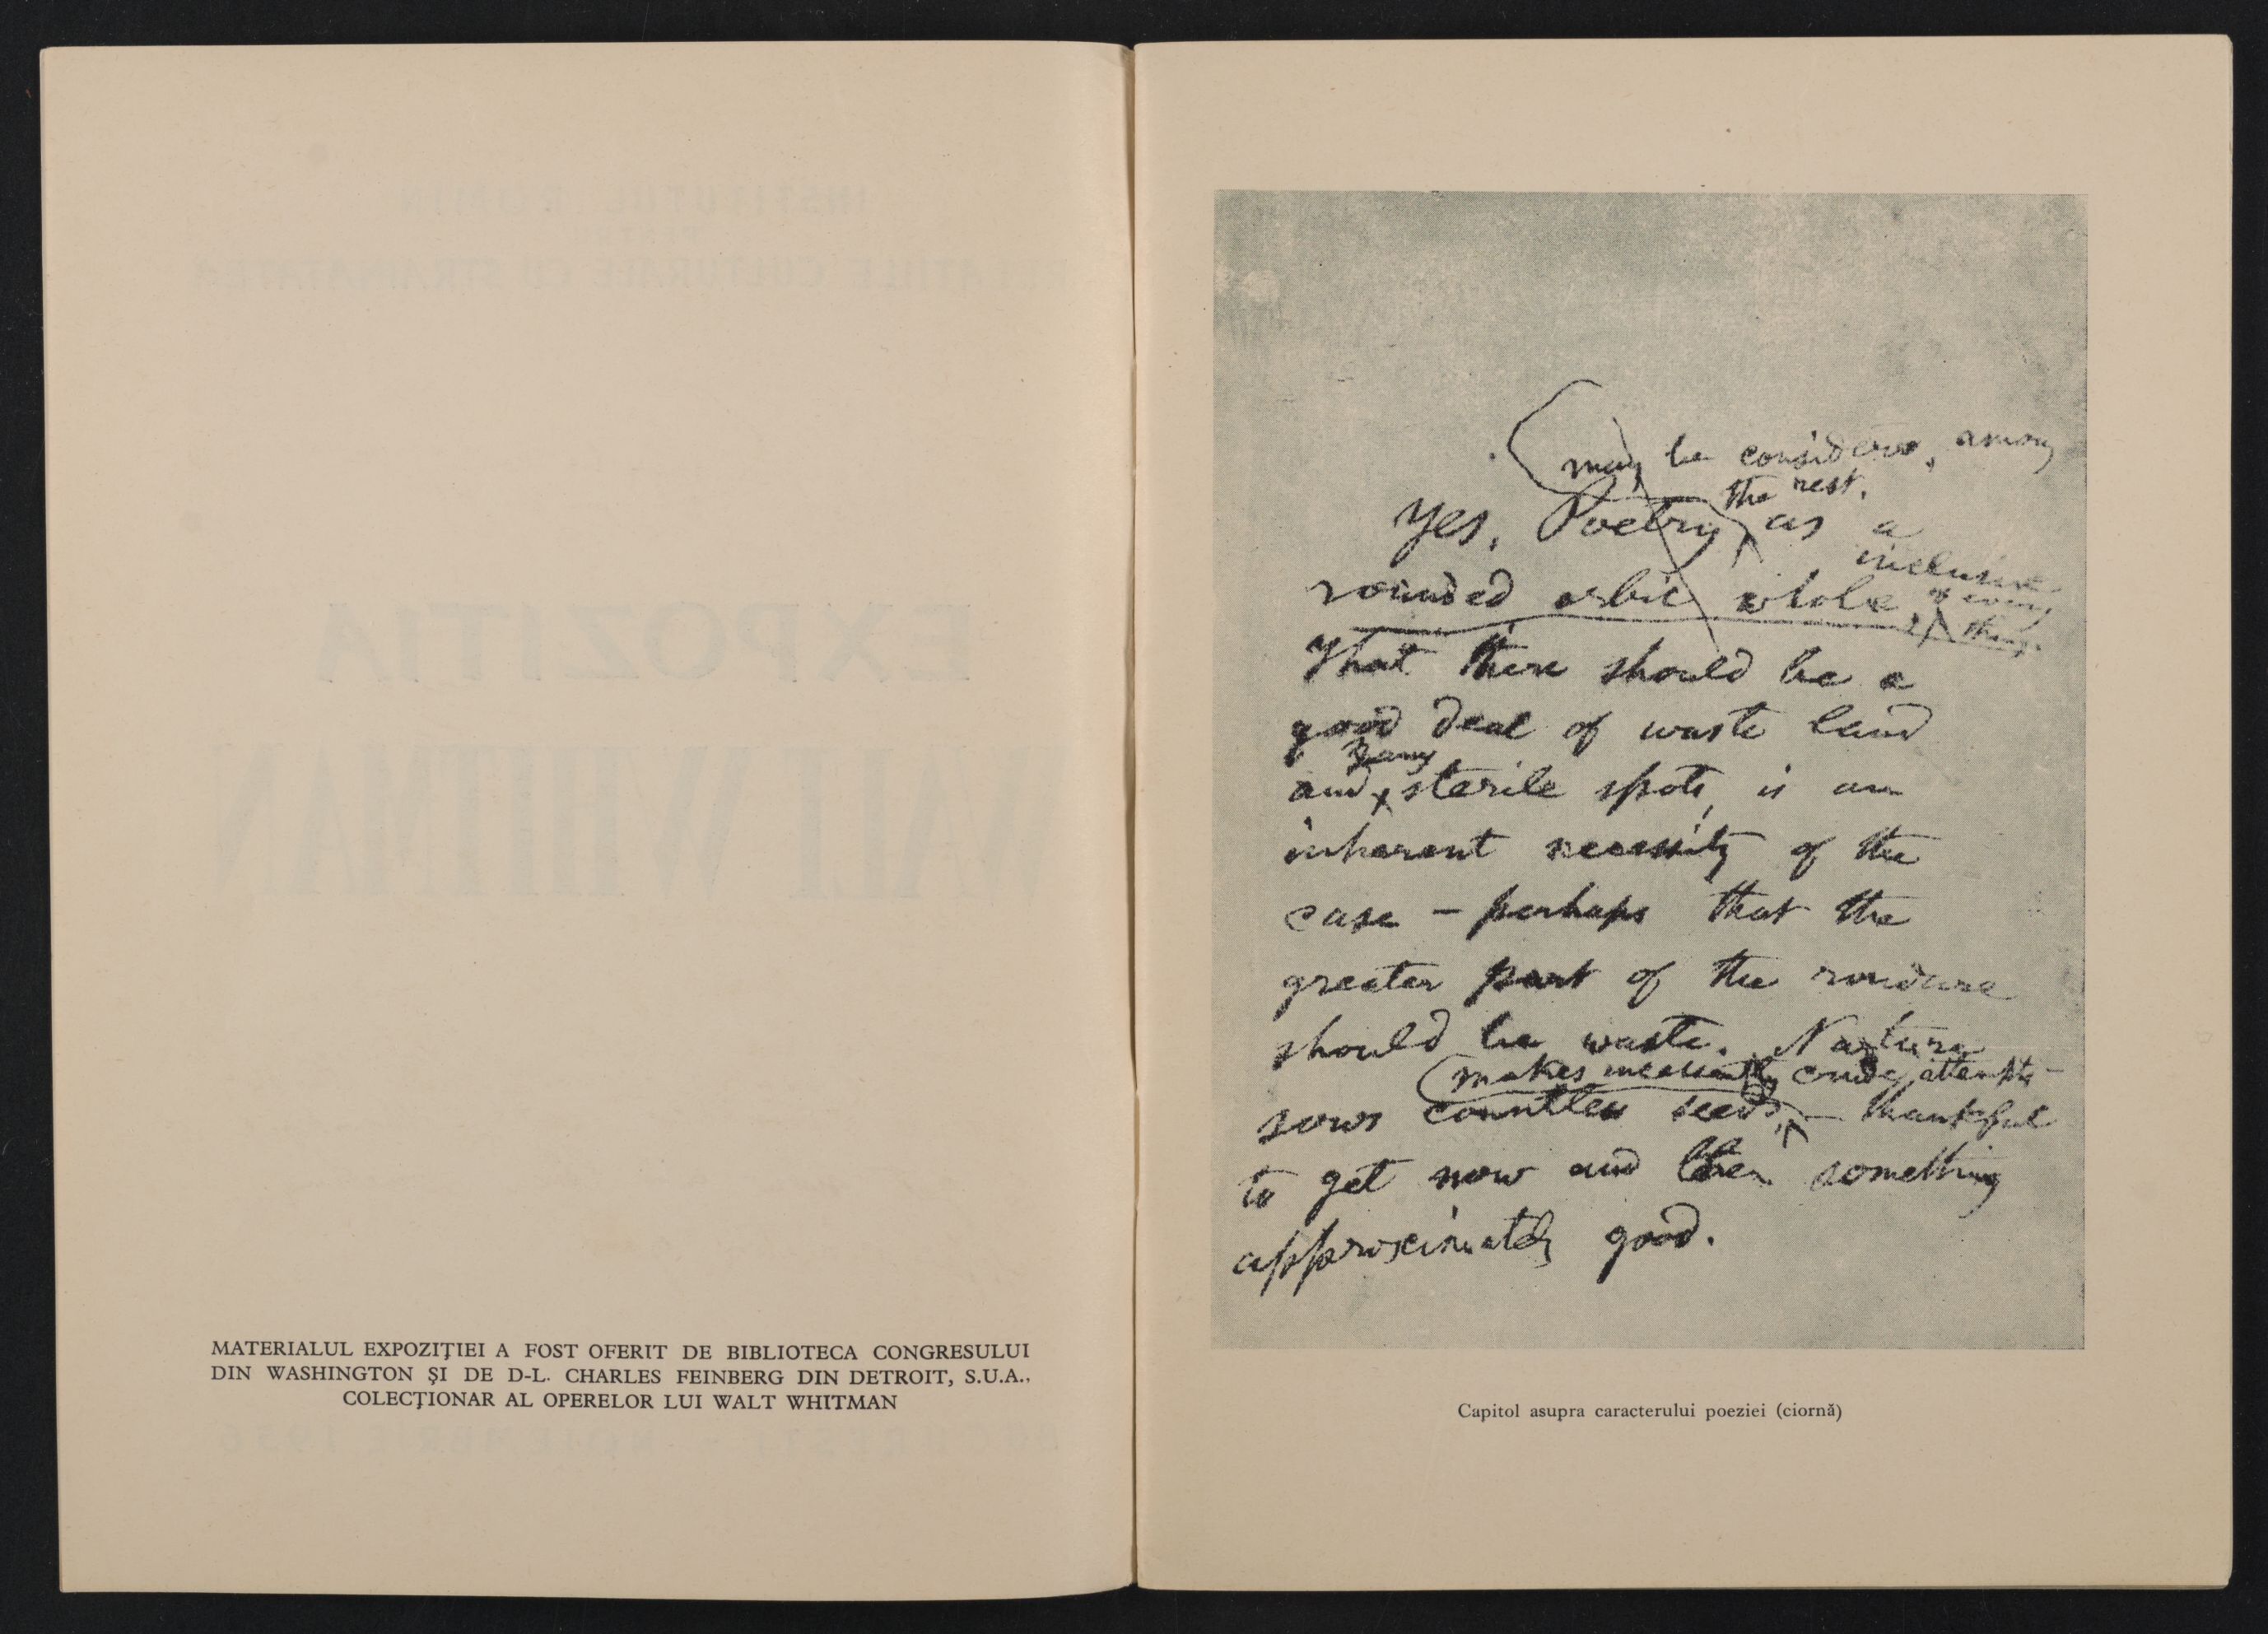 MATERIALUL EXPOZIŢIEI A FOST OFERIT DE BIBLIOTECA CONGRESULUI
DIN WASHINGTON ŞI DE D-L. CHARLES FEINBERG DIN DETROIT, S.U.A.,
COLECŢIONAR AL OPERELOR LUI WALT WHITMAN
may be considered, among
the rest,
Yes, Poetry, as a
inclusive
rounded orbic whole, of every
thing.
That there should be a
good deal of waste land
many
and sterile spots, is an
inherent necessity of the
case – perhaps that the
greater part of the rondure
should be waste. Nature
makes incessantly crude attempts –
sows countless seeds, – thankful
to get now and then something
approximately good.
Capitol asupra caracterului poeziei (ciornă)